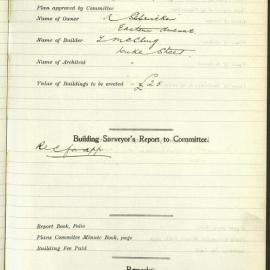 Plan approved by Committee
Name of Owner
Eastern Avenue
Name of Builder L McClurg
Duke Street
Name of Architect "
Value of Buildings to be erected £25
Building Surveyor's Report to Committee.
Rec for app
Report Book, Folio
Plans Committee Minute Book, page
Building Fee Paid
Remarks